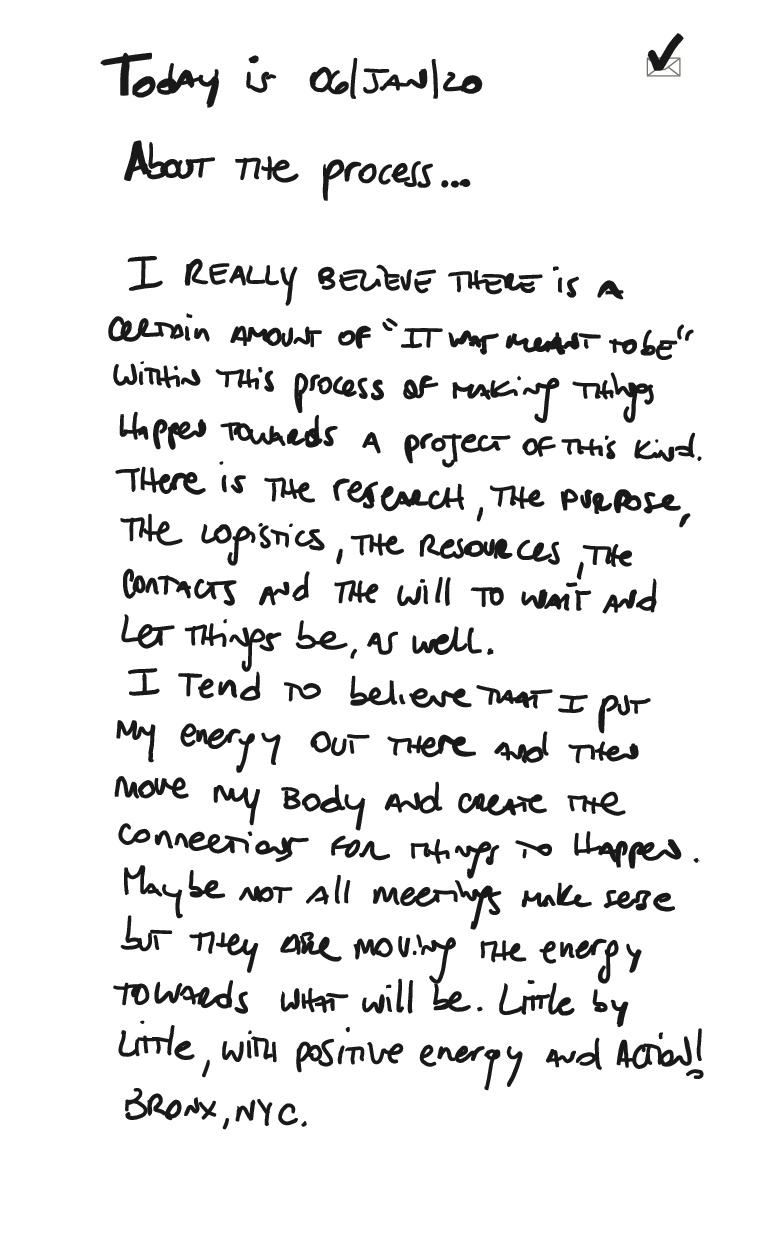 Today is 06/JAN/20
About the process...
I REALLY BELIEVE THERE is A
certain AMOUNT OF "IT was meant to be"
within this process of making things
Happen towards A project OF THIS kind.
There is the research, the purpose,
the logistics, the resources, the
contacts and the will to wait and
Let things be, as well.
I tend to believe that I put
My energy out there and then
move my Body and create the
connections for things to Happen.
Maybe not all meetings make sense
but they are moving the energy
towards what will be. Little by
Little, with positive energy and Action!
BRONX, NYC.